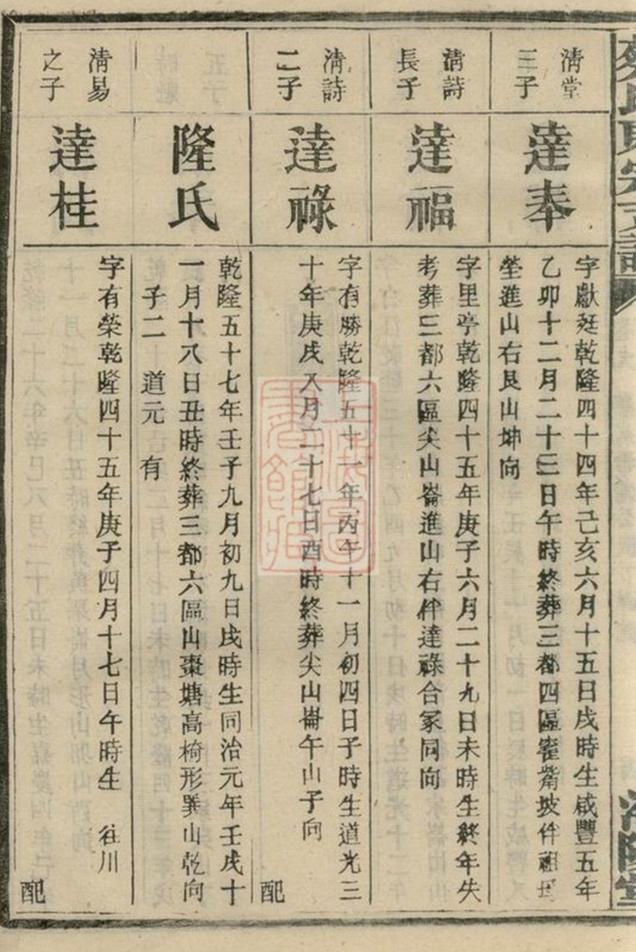 清堂
三子
達奉
字獻珽乾隆四十四年己亥六月十五日戌時生咸豐五年
乙卯十二月二十三日午時終葬三都四區
坡伴祖
塋進山右艮山坤向
清詩
長子
達福
字里亭乾隆四十五年庚子六月二十九日未時生終年失
考葬三都六區尖山崙進山右伴達祿合冢同向
清詩
二子
達祿
字有勝乾隆五十一年丙午十一月初四日子時生道光三
十年庚戌八月二十七日酉時終葬尖山崙午山子向
配
隆氏
乾隆五十七年壬子九月初九日戌時生同治元年壬戌十
一月十八日丑時終葬三都六區山棗塘高椅形巽山乾向
子二 道元 有
清易
之子
達桂
字有榮乾隆四十五年庚子四月十七日午時生 往川
配